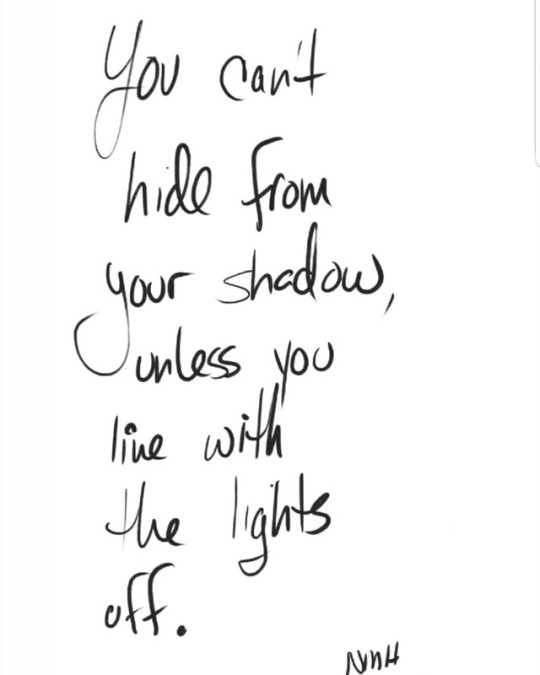 You can't
hide from
your shadow,
unless you
live with
the lights
off.
NnH